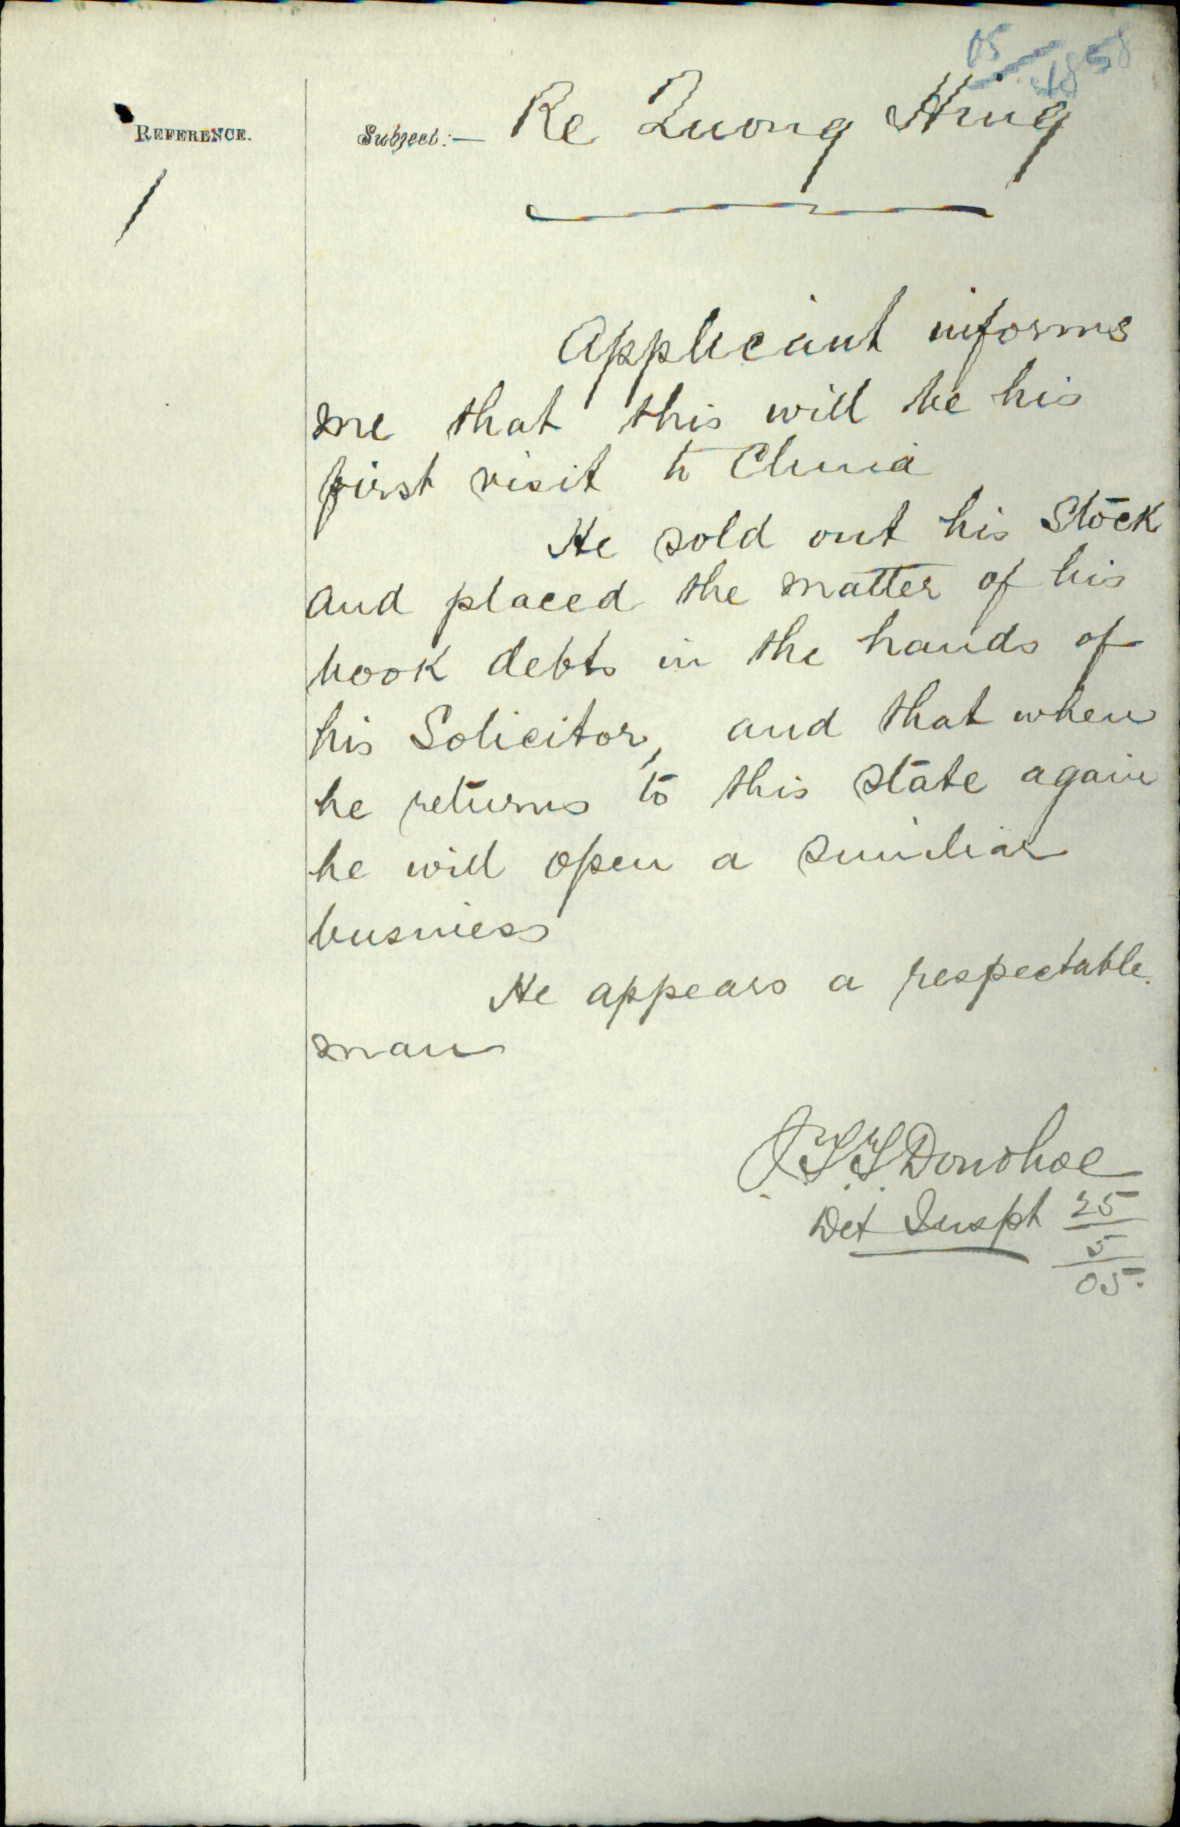 05/1858
REFERENCE.
Subject:— Re Quong Hing
Applicant informs
me that this will be his
first visit to China
He sold out his Stock
and placed the matter of his
book debts in the hands of
his Solicitor, and that when
he returns to this state again
he will open a similiar
business
He appears a respectable
man
Donohoe
Det Inspt 25
5
05.